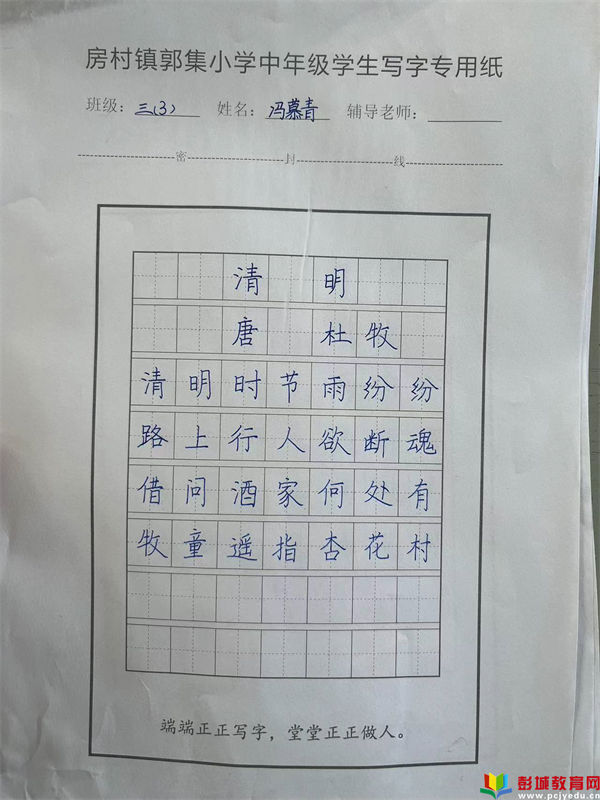 房村镇郭集小学中年级学生写字专用纸
班级：三(3) 姓名：冯慕青 辅导老师：
密 封 线
清 明
唐 杜牧
清明时节雨纷纷
路上行人欲断魂
借问酒家何处有
牧童遥指杏花村
端端正正写字，堂堂正正做人。
彭城教育网
www.pcjyedu.cn